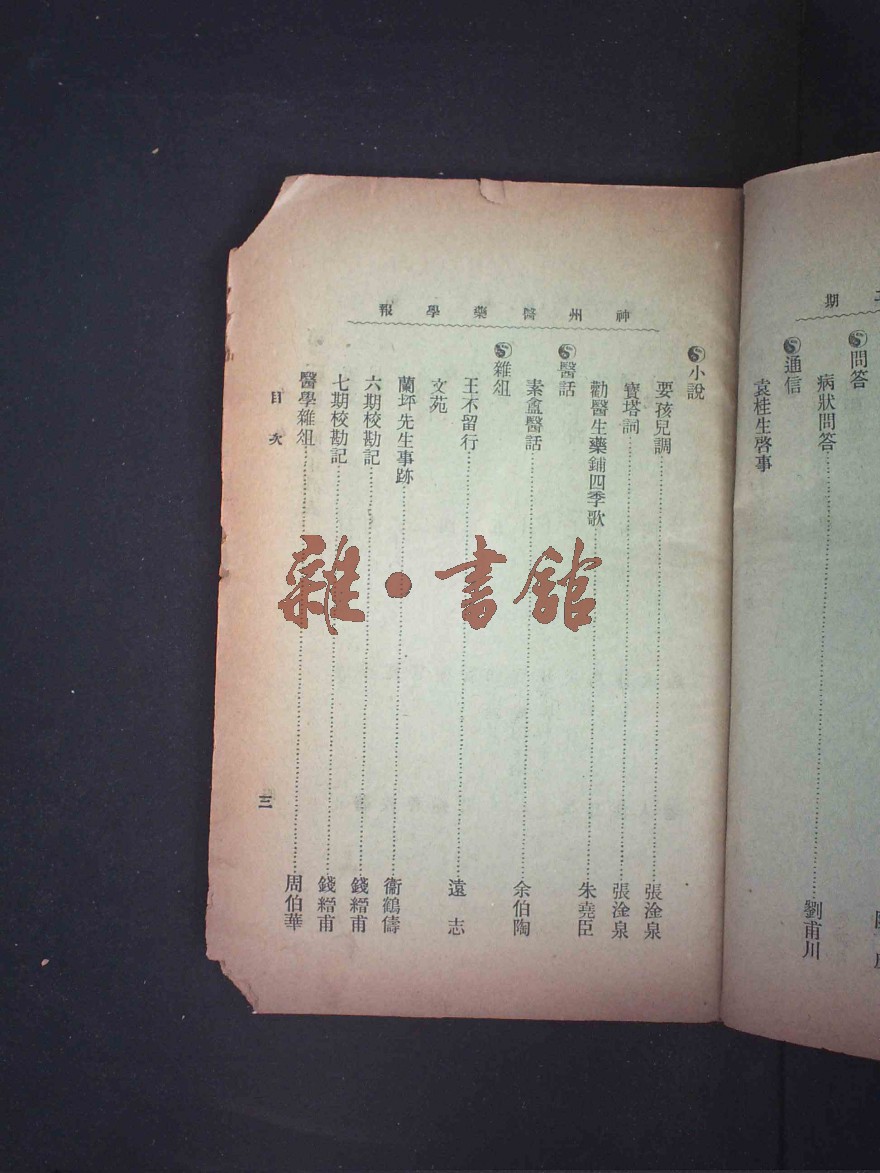 期
問答
病狀問答 劉甫川
通信
袁桂生啓事
神州醫藥學報
小說
耍孩兒調 張淦泉
寶塔詞 張淦泉
勸醫生藥鋪四季歌 朱堯臣
醫話
素盦醫話 余伯陶
雜俎
王不留行 遠志
文苑
蘭坪先生事跡 衞鶴儔
六期校勘記 錢縉甫
七期校勘記 錢縉甫
醫學雜俎 周伯華
目次
三
雜·書館